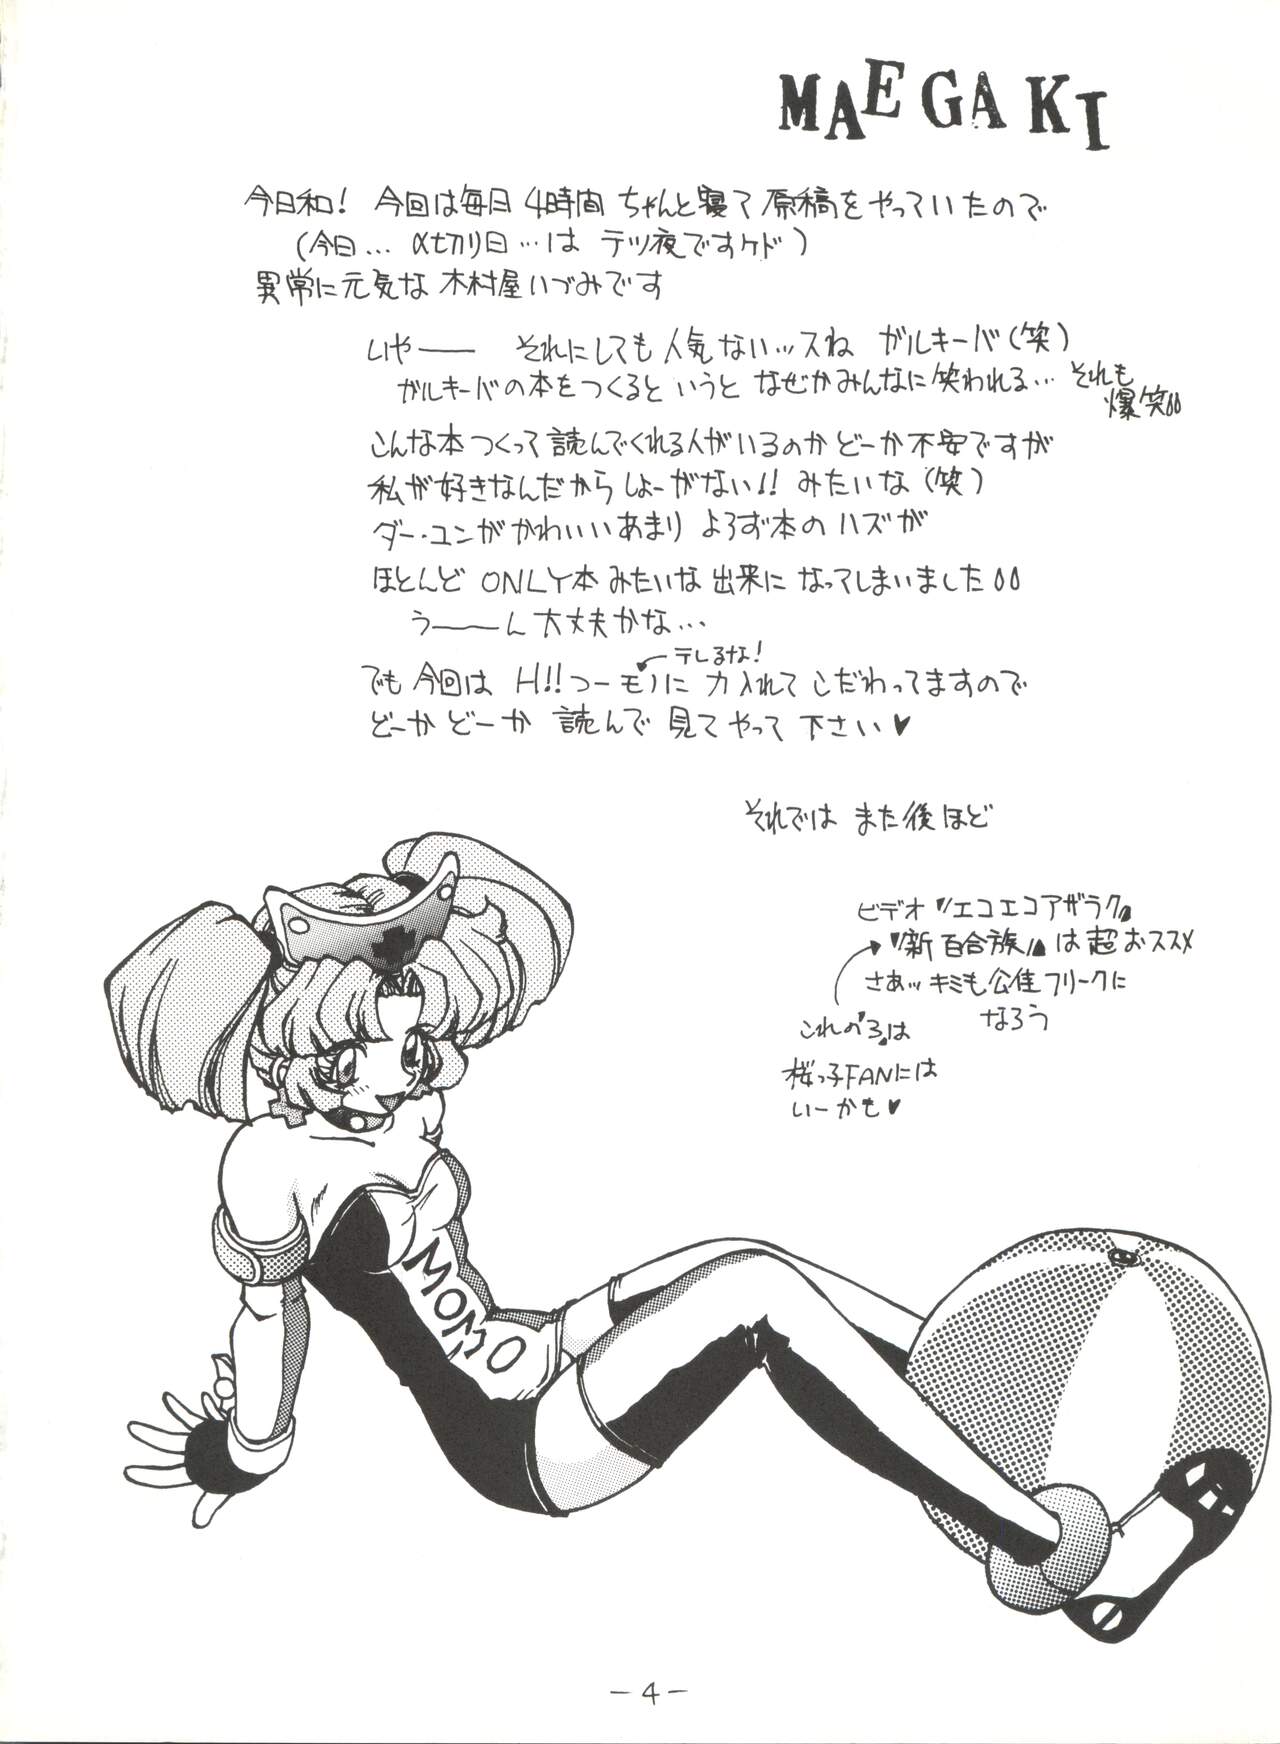 MAEGAKI
今日和! 今回は毎日4時間ちゃんと寝て原稿をやっていたので
(今日…〆切り日…は テツ夜ですケド)
異常に元気な木村屋いづみです
いやー それにしても人気ないッスね ガルキーバ(笑)
ガルキーバの本をつくるというと なぜかみんなに笑われる… それも
爆笑
こんな本つくって読んでくれる人がいるのかどーか不安ですが
私が好きなんだからしょーがない!! みたいな(笑)
ダー・ユンがかわいいあまり よろず本のハズが
ほとんどONLY本みたいな出来になってしまいました
うーん大丈夫かな…
テレるな!
でも今回は H!!つーモノに力入れてこだわってますので
どーかどーか 読んで見てやって下さい♥
それでは また後ほど
ビデオ『エコエコアザラク』
『新百合族』は超おススメ
さあッ キミも公佳フリークに
なろう
これの3は
桜っ子FANには
いーかも♥
MOMO
-4-